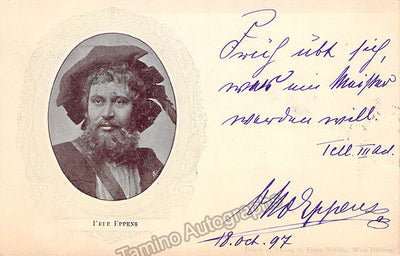 Früh übt sich,
was ein Meister
werden will.
Tell. III act.
Otto Eppens
18. Oct. 97
HERR EPPENS
Franz Schöler, Wien Döbling.
Tamino Autographs